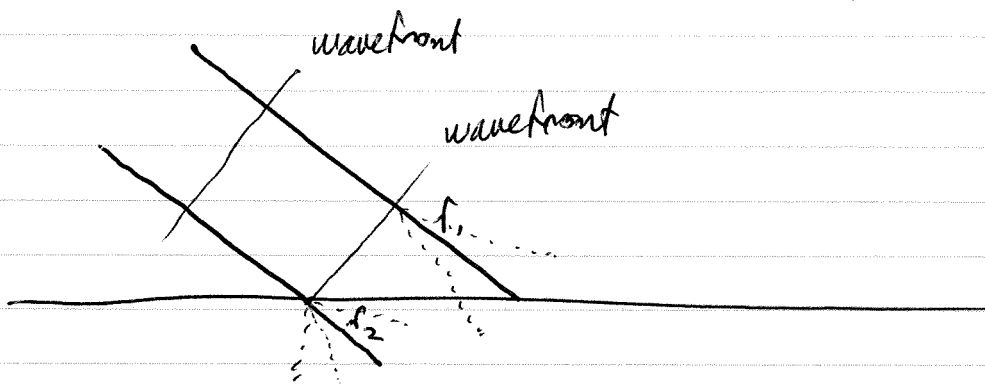 wavefront
wavefront
r₁
r₂